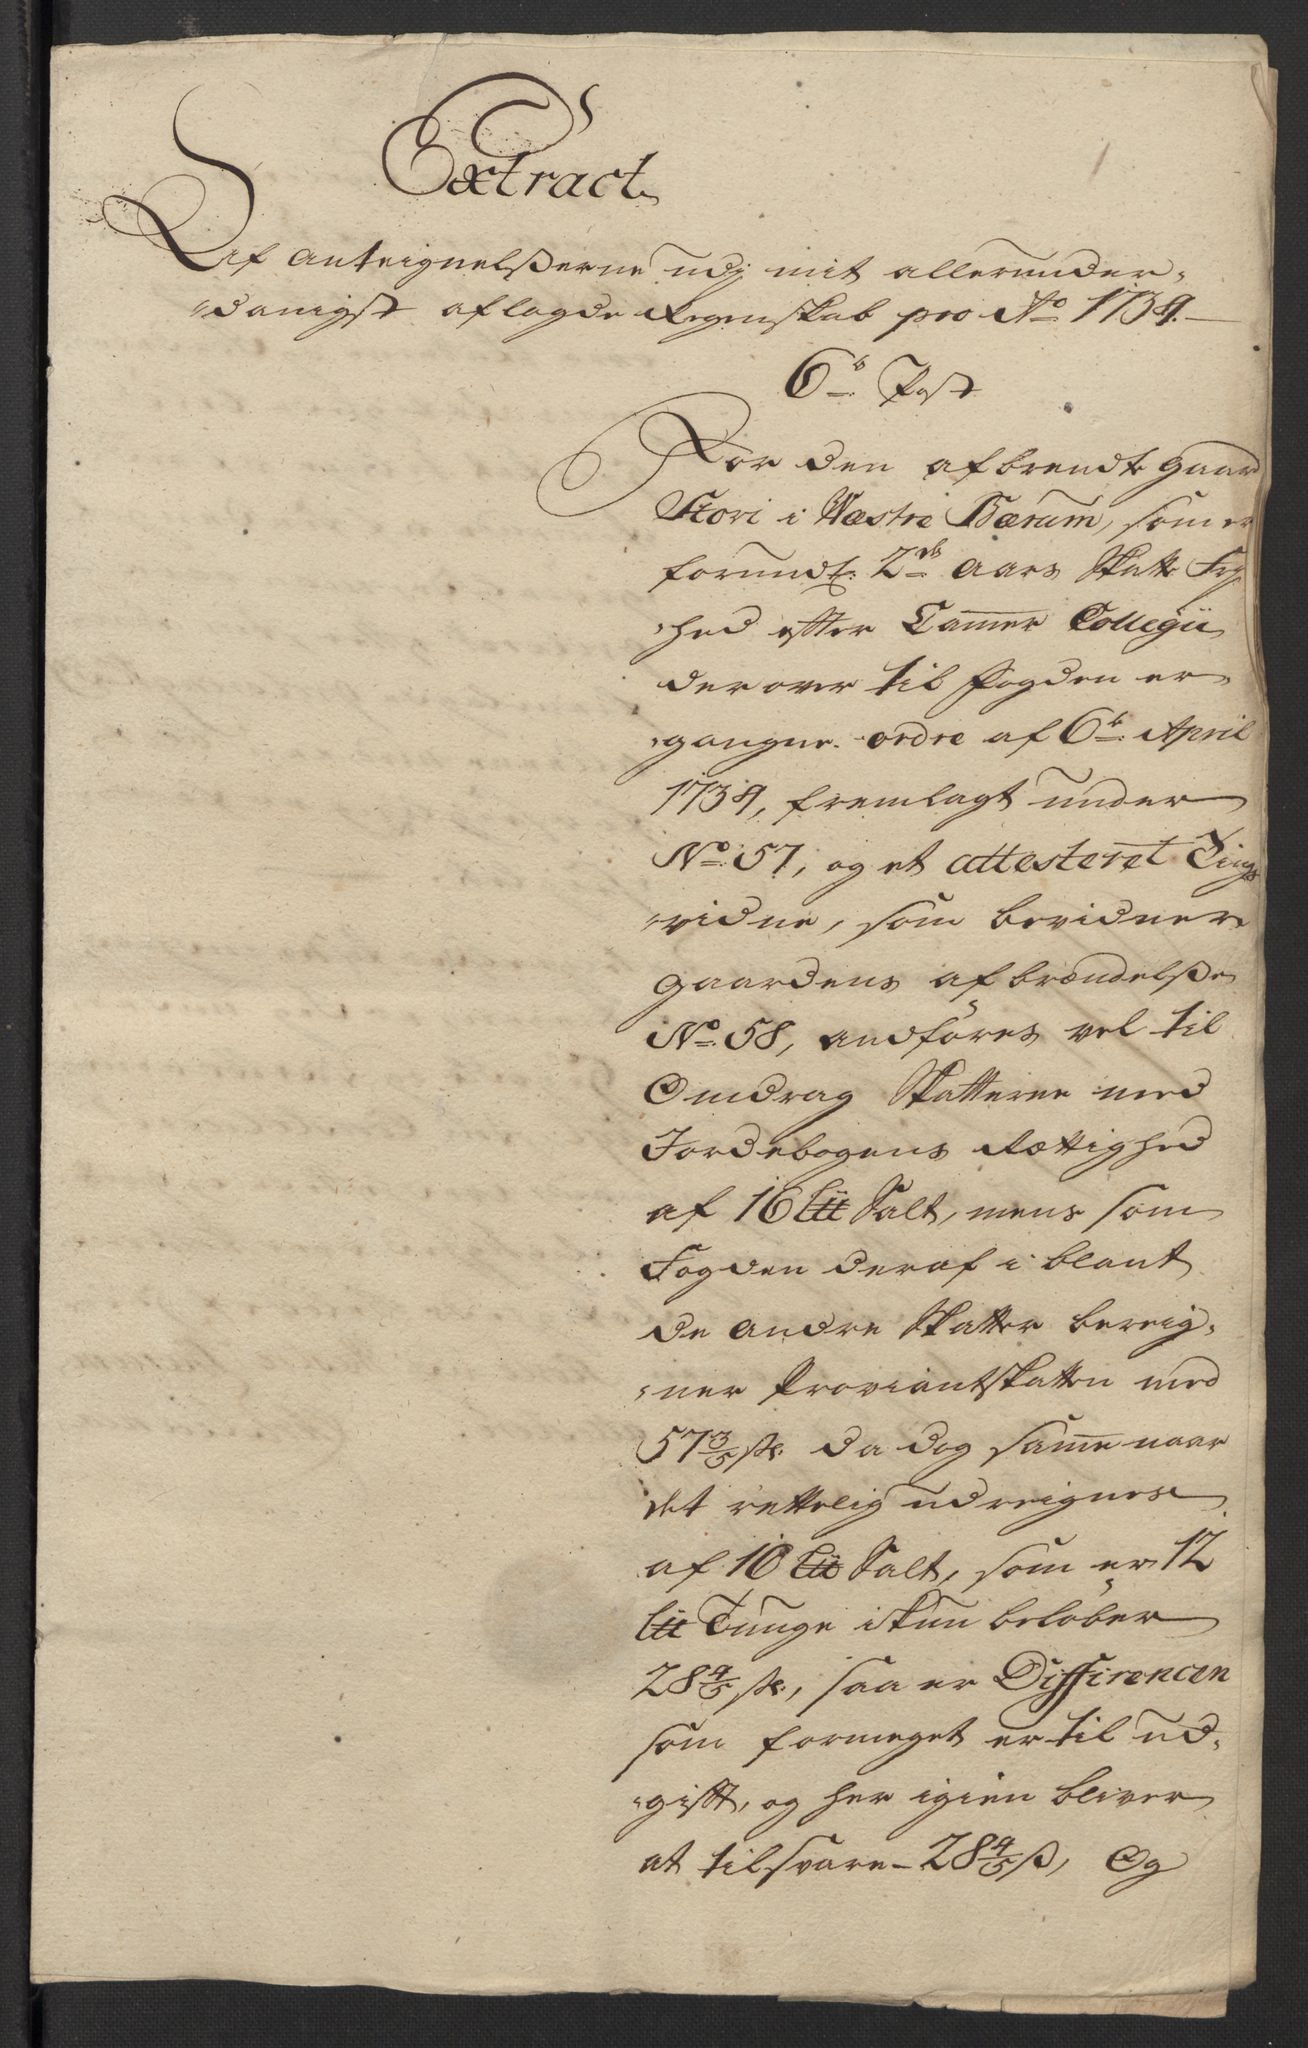 Extract
Af Anteignelßerne udj mit allerunder-
danigst aflagde Regenskab pro Ao 1734.
6te Post
For den afbrendte Gaard
Stovi i Westre Bærum, som er
forundt 2de Aars Skatte Fry-
hed efter Cammer Collegii
derover til Fogden er-
gangne ordre af 6te April
1734, fremlagt under
No 57, og et attesteret Tings
vidne, som bevidner
Gaardens afbrændelße
No 58, andføres vel til
Omdrag Skatterne med
Jordebogens Rættighed
af 16 Lii Salt, mens som
Fogden deraf i blant
de andre Skatter bereig-
ner Proviantskatten med
57 3/5 sk: da dog samme naar
det rettelig udreignes
af 16 Lii Salt, som er 12
Lii Tunge ikkun beløber
28 4/5 sk:, saa er Differencen
som formeget er til ud-
gifft, og her igien bliver
at tilsvare - 28 4/5 ß, Og